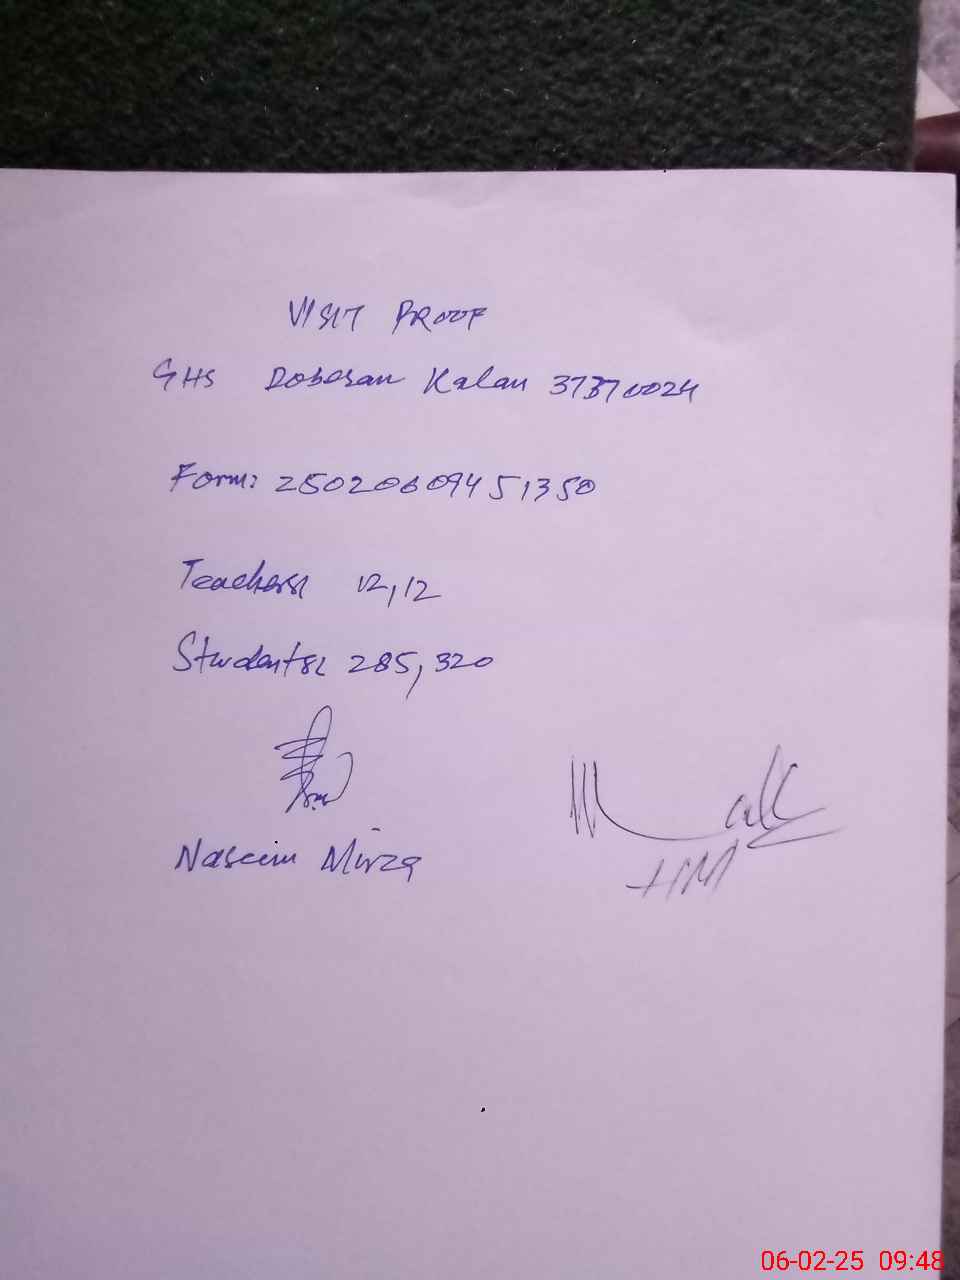 VISIT PROOF
GHS Doberan Kalan 37370024
Form: 25020609451350
Teachers: 12,12
Students: 285, 320
Naseem Mirza
HM
06-02-25 09:48